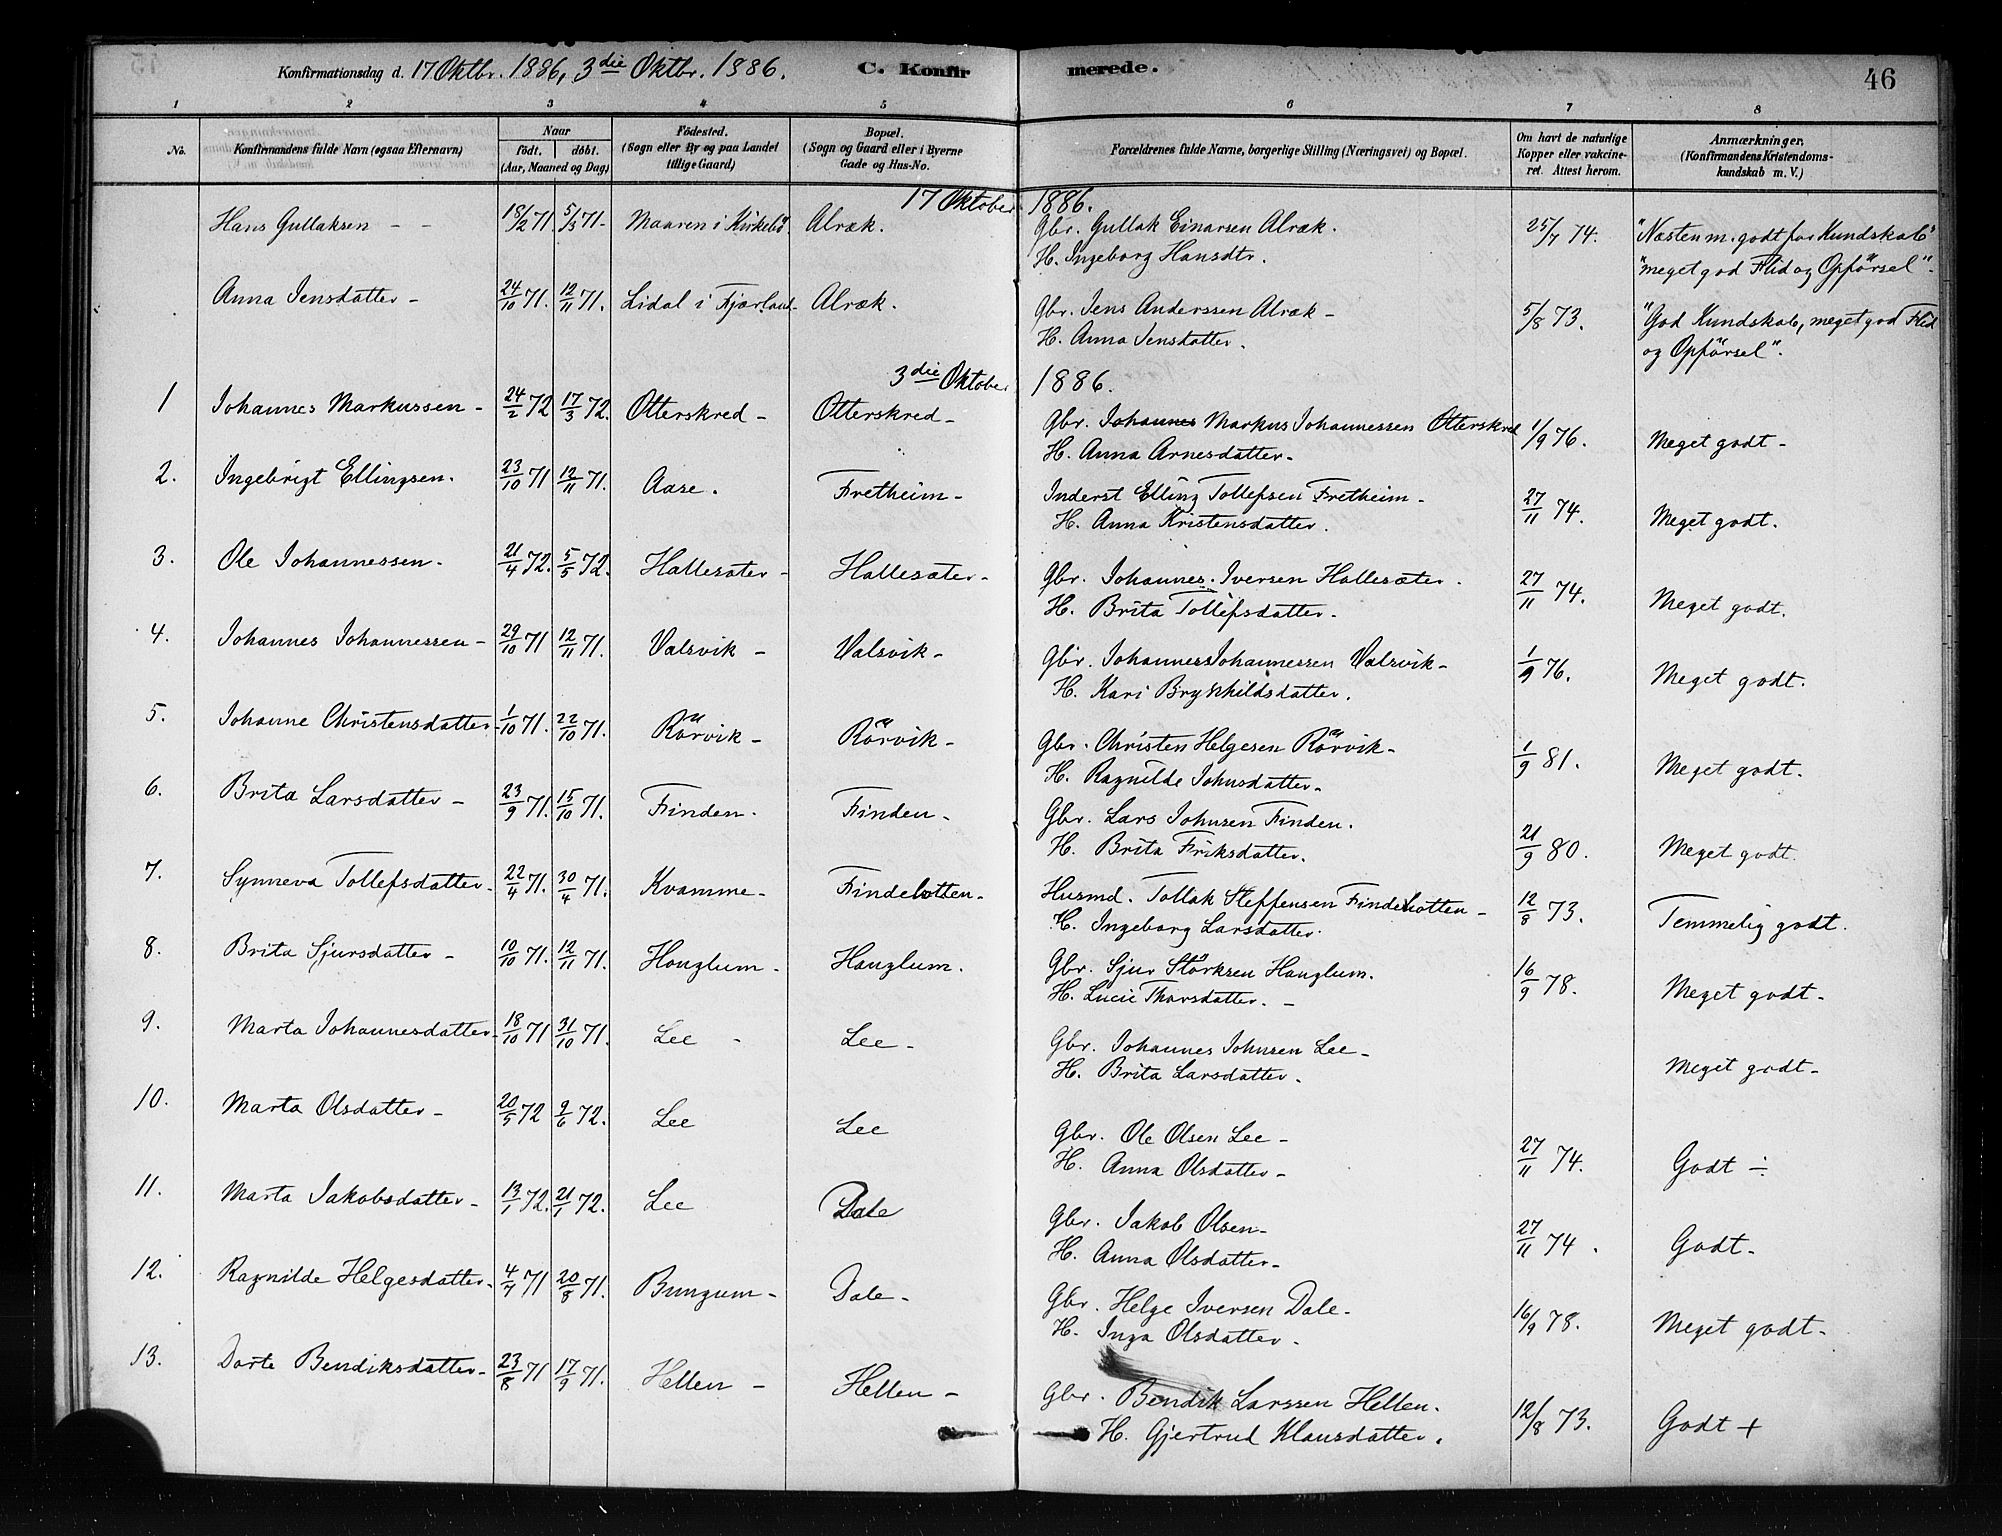 Konfirmationsdag d. 17 Oktbr. 1886, 3die Oktbr. 1886. C. Konfirmerede. 46
1 2 3 4 5 6 7 8
No. Konfirmandens fulde Navn (ogsaa Efternavn) Naar født, døbt. (Aar, Maaned og Dag) Fødested. (Sogn eller By og paa Landet tillige Gaard) Bopæl. (Sogn og Gaard eller i Byerne Gade og Hus-No. Forældrenes fulde Navne, borgerlige Stilling (Næringsvei) og Bopæl. Om havt de naturlige Kopper eller vakcineret. Attest herom. Anmærkninger. (Konfirmandens Kristendomskundskab m. V.)
17 Oktober 1886.
Hans Gullaksen - - 18/2 71. 5/3 71. Maaren i Kirkebö. Alræk. Gbr. Gullak Einarsen Alræk. 25/7 74. "Næsten m. godt for Kundskab"
H. Ingeborg Hansdtr. "meget god Flid og Opförsel".
Anna Jensdatter - 24/10 71. 12/11 71. Lidal i Fjærland. Alræk. Gbr. Jens Anderssen Alræk - 5/8 73. "God Kundskab, meget god Flid
H. Anna Jensdatter. og Opförsel".
3die Oktober 1886.
1 Johannes Markussen - 24/2 72 17/3 72. Otterskred - Otterskred - Gbr. Johannes Markus Johannessen Otterskred 1/9 76. Meget godt -
H. Anna Arnesdatter -
2. Ingebrigt Ellingsen. 23/10 71 12/11 71. Aase. Fretheim - Inderst Elling Tollefsen Fretheim - 27/11 74. Meget godt.
H. Anna Kristensdatter.
3. Ole Johannessen. 21/4 72. 5/5 72. Hallesæter - Hallesæter - Gbr. Johannes. Iversen Hallesæter. 27/11 74. Meget godt.
H. Brita Tollefsdatter -
4. Johannes Johannessen - 29/10 71 12/11 71. Valsvik - Valsvik - Gbr. Johannes Johannessen Valsvik - 1/9 76. Meget godt.
H. Kari Brynhildsdatter.
5. Johanne Christensdatter - 1/10 71. 22/10 71. Rörvik - Rörvik - Gbr. Christen Helgesen Rörvik - 1/9 81. Meget godt.
H. Ragnilde Johnsdatter -
6. Brita Larsdatter - 23/9 71. 15/10 71. Finden. Finden - Gbr. Lars Johnsen Finden. 21/9 80. Meget godt.
H. Brita Eriksdatter.
7. Synneva Tollefsdatter - 22/4 71. 30/4 71. Kvamme - Findebotten - Husmd. Tollak Steffensen Findebotten - 12/8 73. Temmelig godt.
H. Ingeborg Larsdatter.
8. Brita Sjursdatter - 10/10 71. 12/11 71. Hauglum - Hauglum. Gbr. Sjur Störksen Hauglum. 16/9 78. Meget godt -
H. Lucie Thorsdatter. -
9. Marta Johannesdatter - 18/10 71 31/10 71. Lee - Lee - Gbr. Johannes Johnsen Lee - Meget godt -
H. Brita Larsdatter.
10. Marta Olsdatter - 20/5 72 9/6 72. Lee Lee Gbr. Ole Olsen Lee - 27/11 74. Godt ÷
H. Anna Olsdatter -
11. Marta Jakobsdatter - 13/1 72. 21/1 72. Lee Dale Gbr. Jakob Olsen - 27/11 74. Godt -
H. Anna Olsdatter -
12. Ragnilde Helgesdatter - 4/7 71 20/8 71. Bungum - Dale - Gbr. Helge Iversen Dale - 16/9 78. Meget godt -
H. Inga Olsdatter -
13. Dorte Bendiksdatter - 23/8 71 17/9 71. Hellen - Hellen - Gbr. Bendik Larssen Hellen. 12/8 73. Godt +
H. Gjertrud Klausdatter.